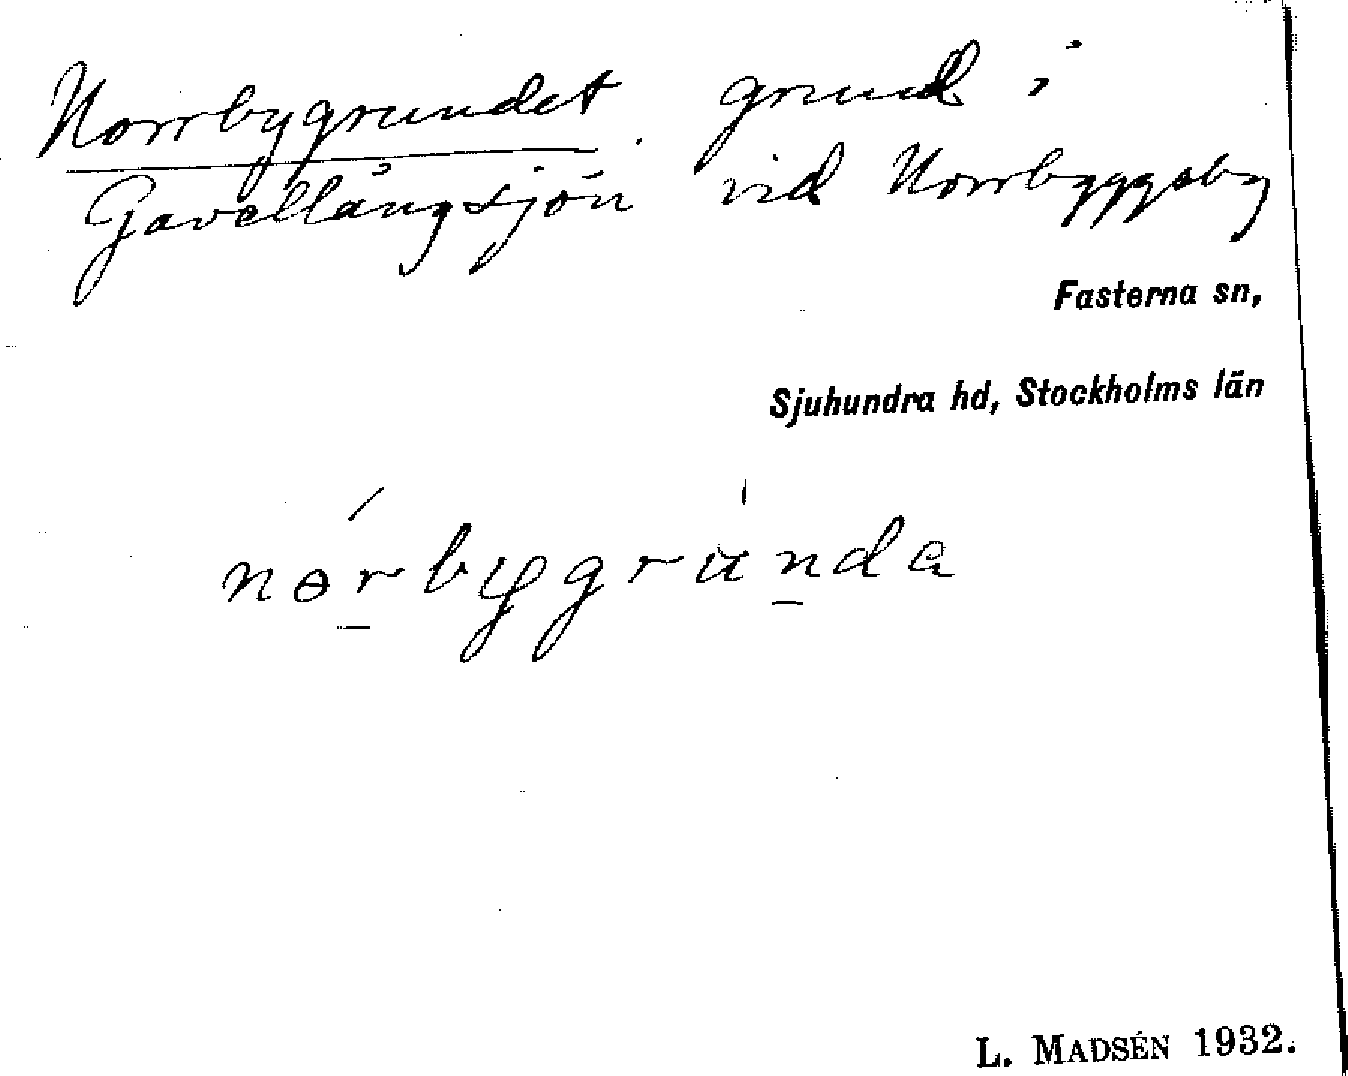 Norrbygrundet. grund i
Gavellångsjön vid Norrbyggeby
Fasterna sn,
Sjuhundra hd, Stockholms län
nɵrbygrunda
L. MADSÉN 1932.